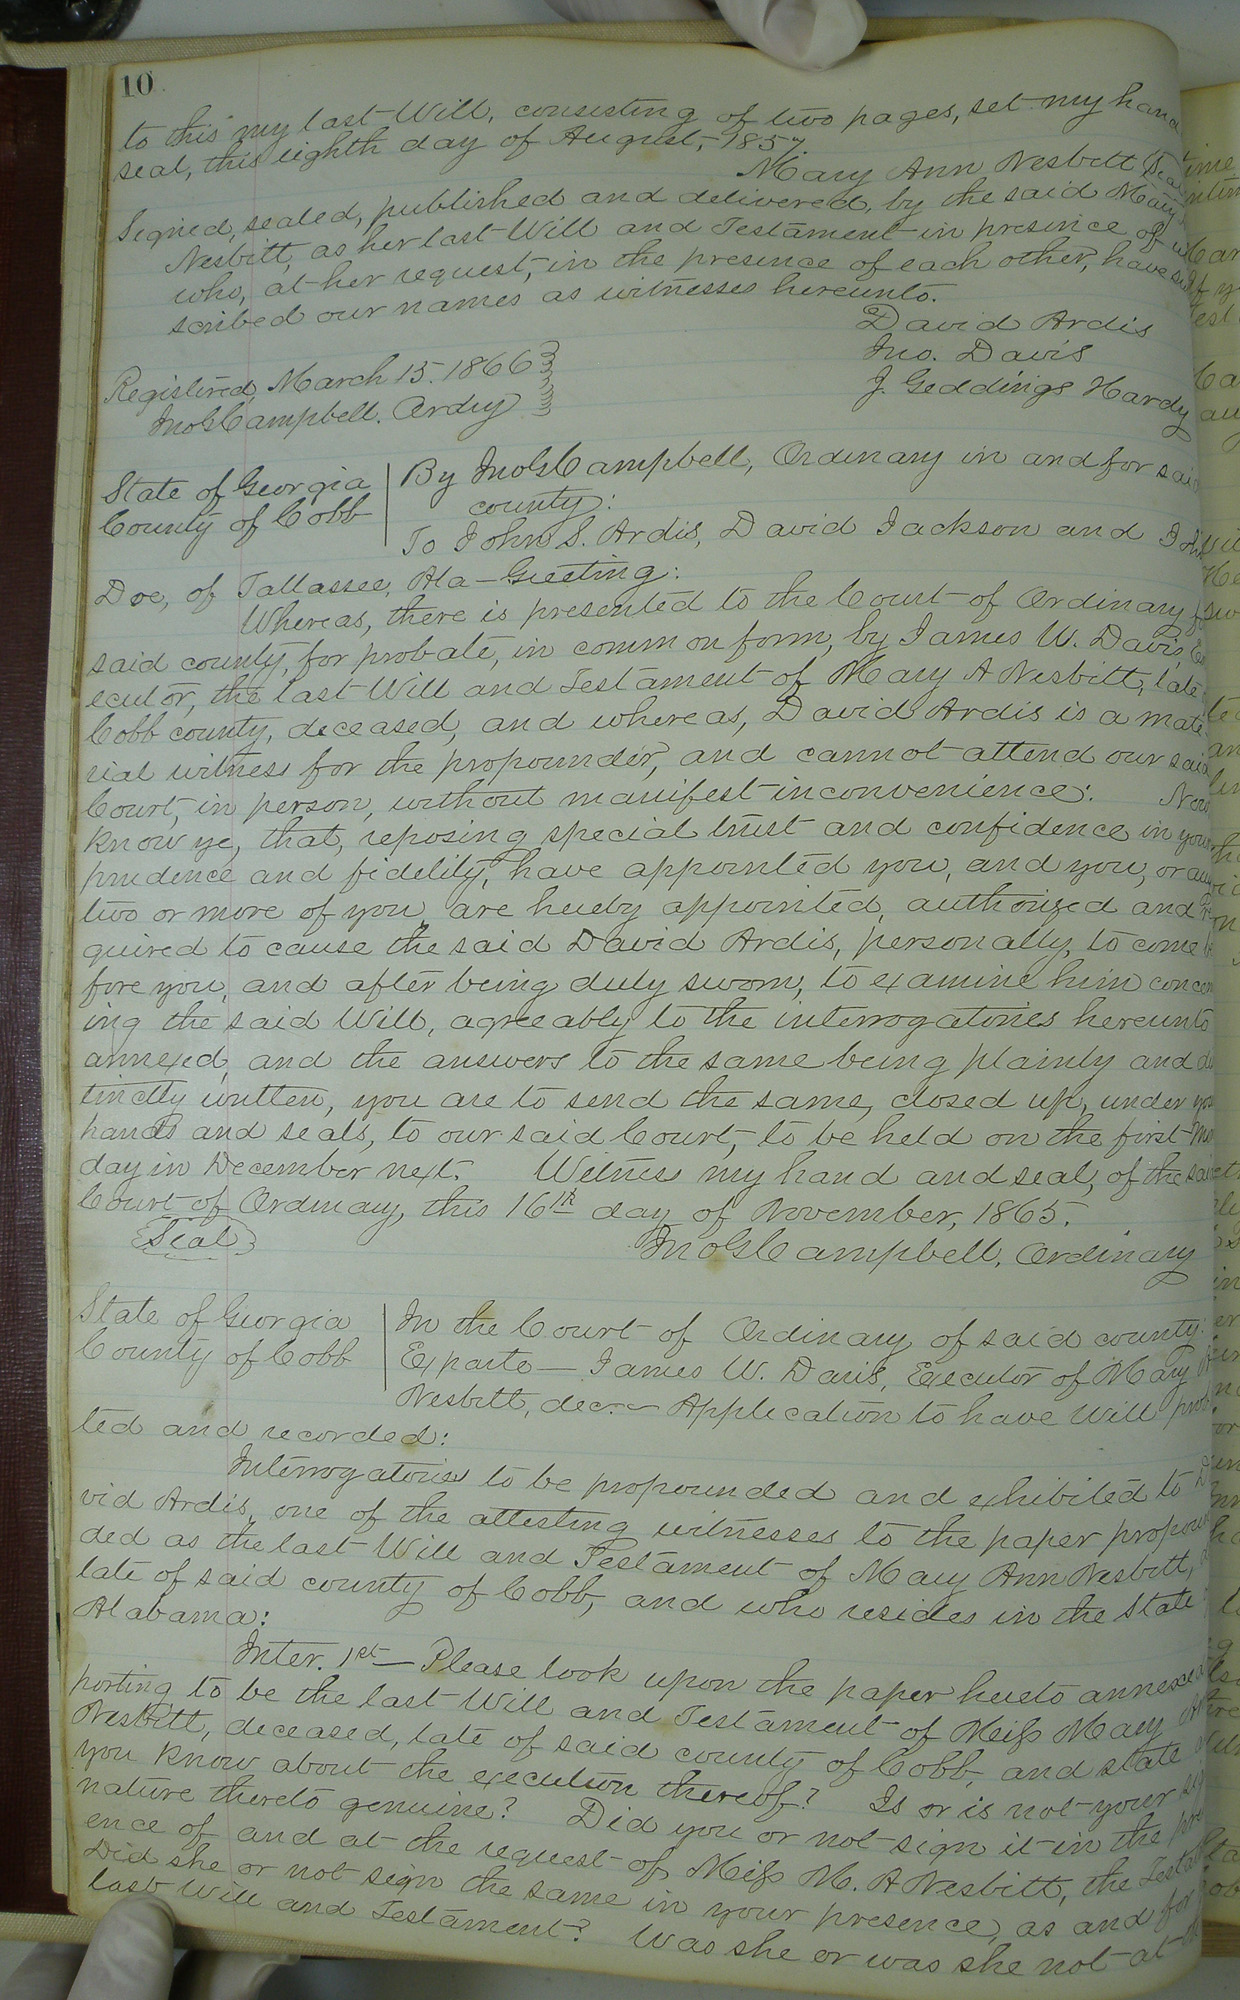 10
to this my last Will, consisting of two pages, set my hand
seal, this eighth day of August, 1857.
Mary Ann Nesbitt Seal
Signed, sealed, published and delivered, by the said Mary
Nesbitt, as her last Will and Testament in presence of
who, at her request, in the presence of each other, have sub
scribed our names as witnesses hereunto.
David Ardis
Jno. Davis
J. Geddings Hardy
Registered, March 15. 1866
Jno G Campbell. Ordry
State of Georgia
County of Cobb
By Jno G Campbell, Ordinary in and for said
county:
To John S. Ardis, David Jackson and John
Doe, of Tallassee, Ala – Greeting:
Whereas, there is presented to the Court of Ordinary
said county, for probate, in common form, by James W. Davis, Ex
ecutor, the last Will and Testament of Mary A Nesbitt, late
Cobb county, deceased, and whereas, David Ardis is a mate
rial witness for the propounder, and cannot attend our said
Court, in person, without manifest inconvenience: Now
know ye, that, reposing special trust and confidence in your
prudence and fidelity, have appointed you, and you, or any
two or more of you, are hereby appointed, authorized and re
quired to cause the said David Ardis, personally, to come be
fore you, and after being duly sworn, to examine him concern
ing the said Will, agreeably to the interrogatories hereunto
annexed, and the answers to the same being plainly and dis
tinctly written, you are to send the same, closed up, under your
hands and seals, to our said Court, to be held on the first Mon
day in December next. Witness my hand and seal, of the said
Court of Ordinary, this 16th day of November, 1865.
Seal
Jno G Campbell, Ordinary
State of Georgia
County of Cobb
In the Court of Ordinary of said county:
Exparte – James W. Davis, Executor of Mary A
Nesbitt, dec. – Application to have Will proba
ted and recorded:
Interrogatories to be propounded and exhibited to Da
vid Ardis, one of the attesting witnesses to the paper propoun
ded as the last Will and Testament of Mary Ann Nesbitt,
late of said county of Cobb, and who resides in the State
Alabama:
Inter. 1st – Please look upon the paper hereto annexed
porting to be the last Will and Testament of Miss Mary
Nesbitt, deceased, late of said county of Cobb, and state
you know about the execution thereof? Is or is not your sig
nature thereto genuine? Did you or not sign it in the pres
ence of and at the request of Miss M. A Nesbitt, the
Did she or not sign the same in your presence, as and for
last Will and Testament? Was she or was she not at